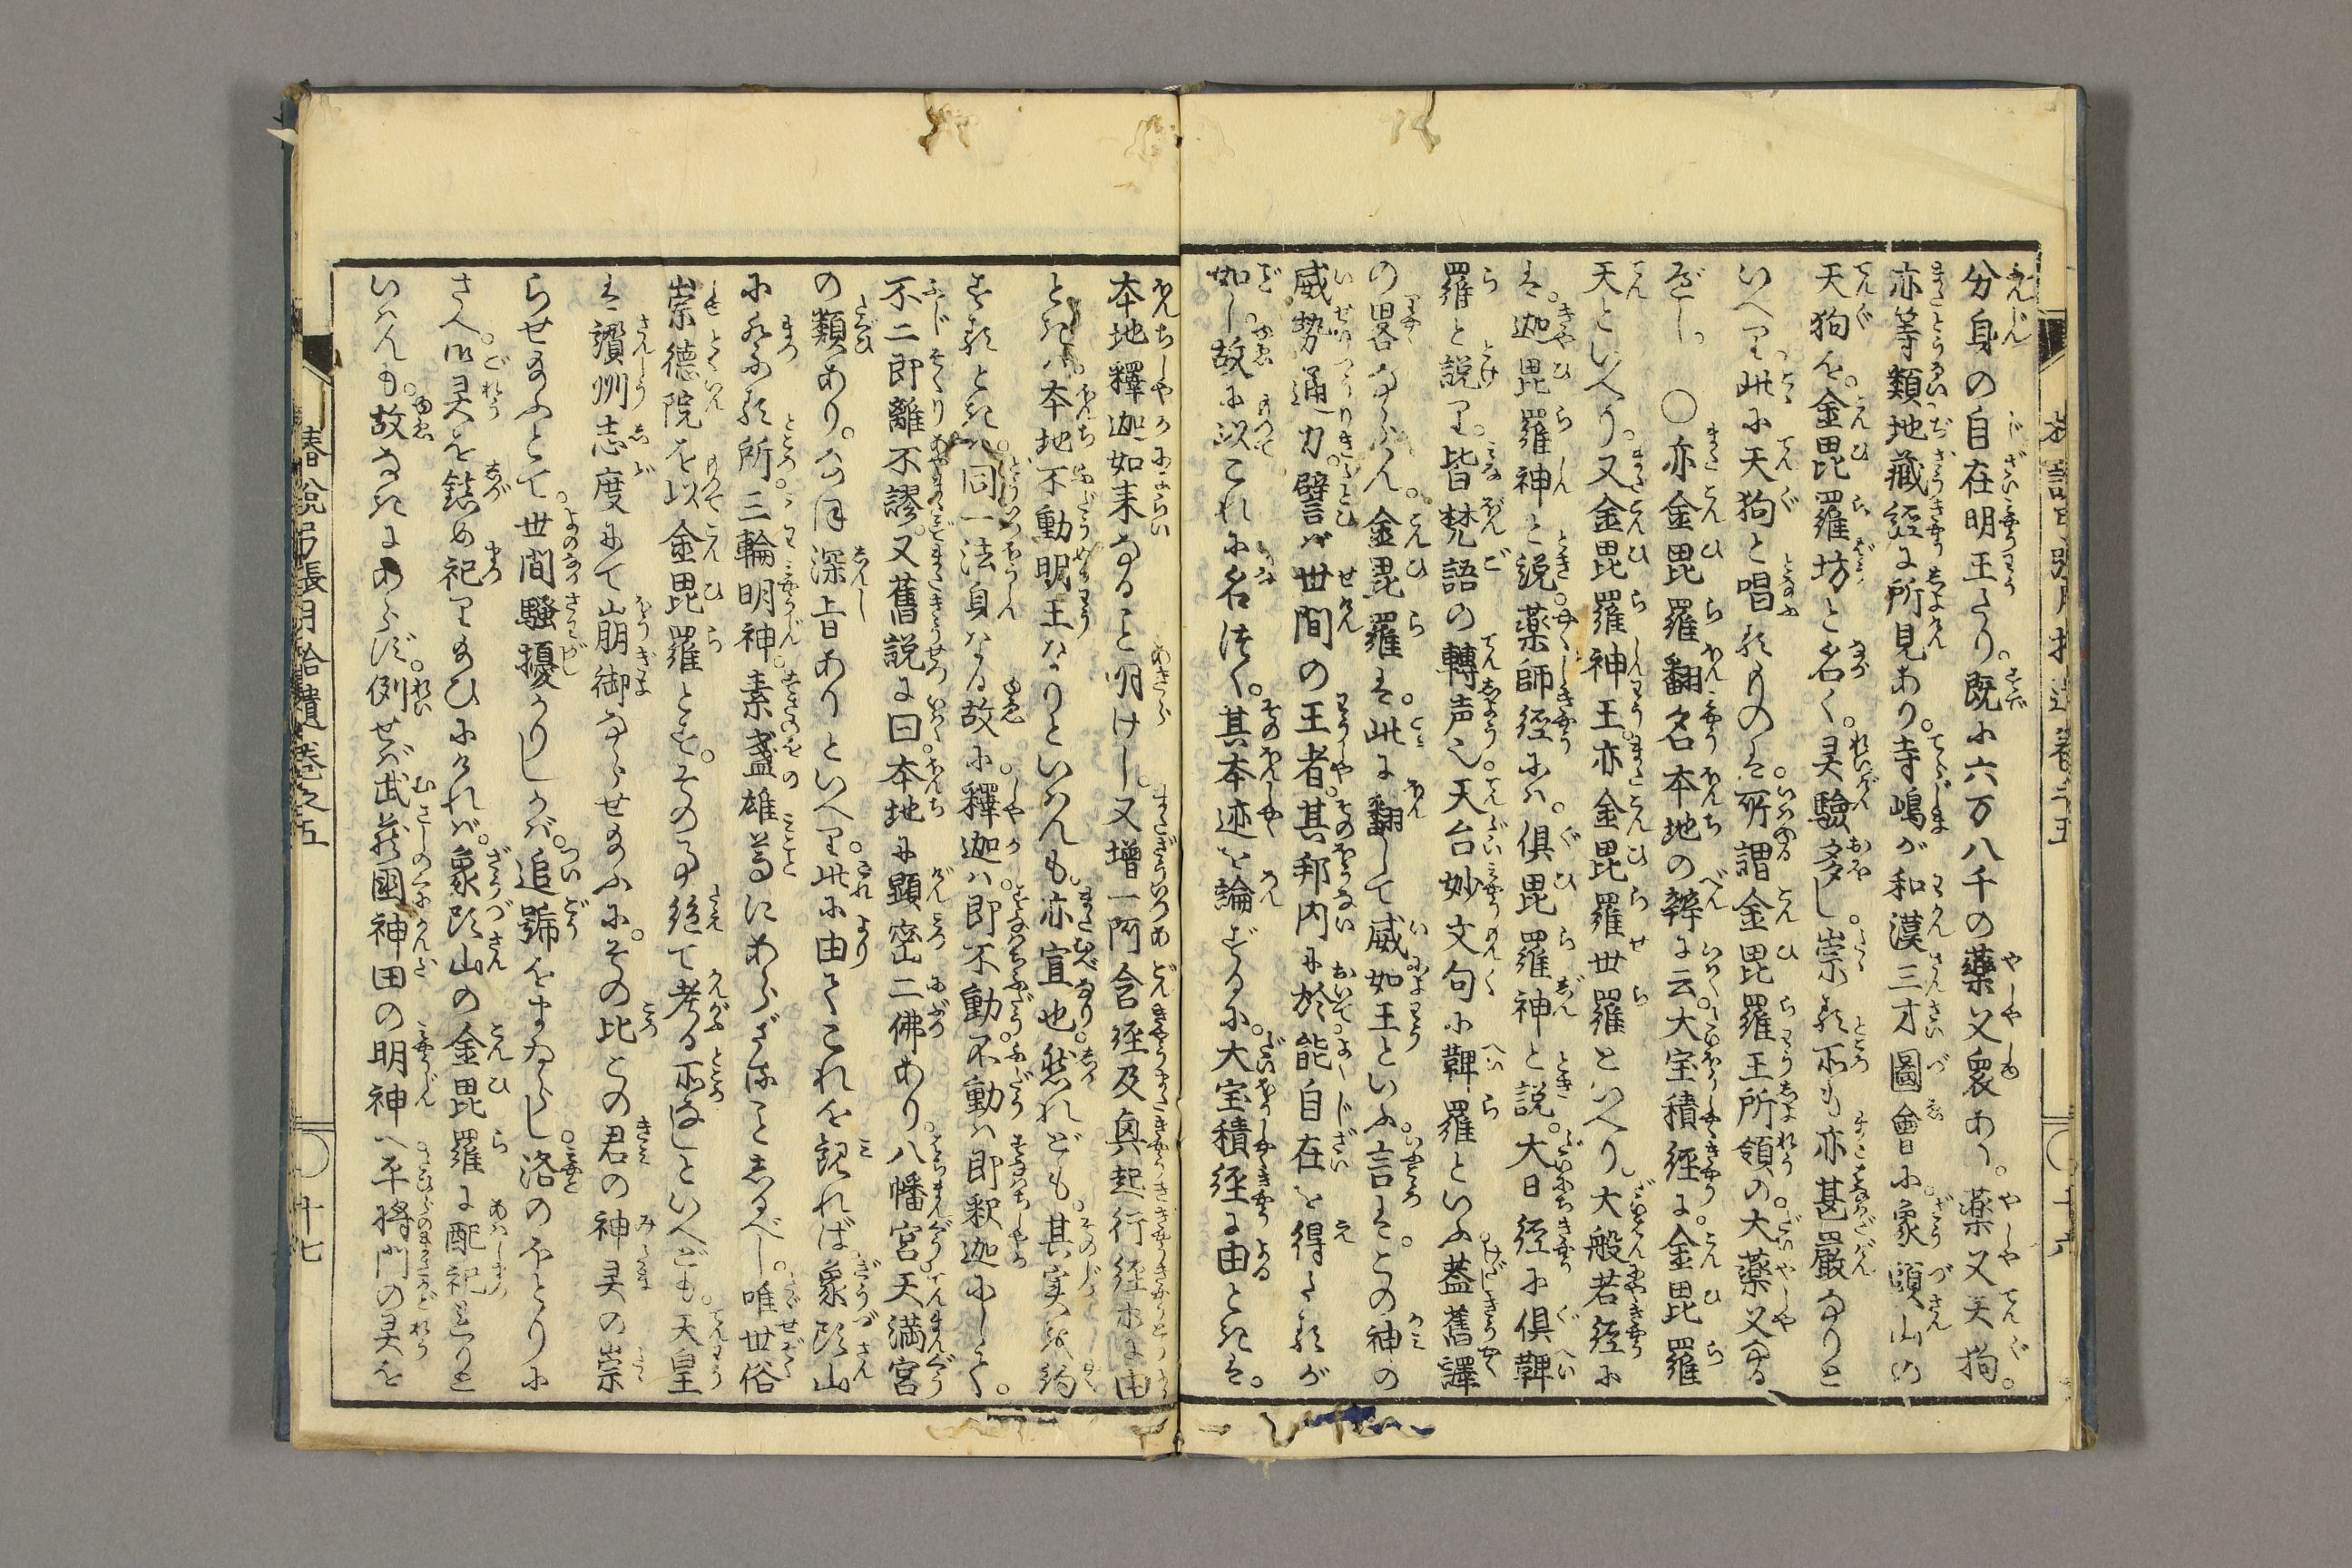 分身の自在明王たり。既に六万八千の藥叉衆あり。藥叉天狗。
亦等類地藏經に所見あり。寺嶋が和漢三才圖會に。象頭山の
天狗を。金毘羅坊と名く。灵驗多し。祟る所も亦甚嚴なりと
いへり。此に天狗と唱るものは。所謂金毘羅王所領の。大藥叉なる
べし。　〇亦金毘羅翻名本地の辨に云。大宝積經に。金毘羅
天といへり。又金毘羅神王。亦金毘羅世羅といへり。大般若經に
は。迦毘羅神と説。藥師經には。倶毘羅神と説。大日經に倶鞞
羅と説り。皆梵語の轉声也。天台妙文句に鞞羅といふ。蓋舊譯
の畧ならん。金毘羅は。此に翻して威如王といふ。言は。この神の
威勢通力。譬ば世間の王者。其邦内に於。能自在を得たるが
如し。故に以これに名つく。其本迹を論ずるに。大宝積經に由ときは。
本地釋迦如来なること明けし。又増一阿含經及興起行經亦に由
ときは。本地不動明王なりといはんも。亦宜也。然れども。其実を約
するときは。同一法身なる故に。釋迦は即不動。不動は即釈迦にして。
不二即離不謬。又舊説に曰。本地に顕密二佛あり。八幡宮。天満宮
の類あり。なほ深旨ありといへり。此に由てこれを観れば。象頭山
に祭る所。三輪明神。素盞雄尊にあらざることしるべし。唯世俗
崇德院を以金毘羅とす。その事絶て考る所なしといへども。天皇
は讚州志度にて崩御ならせ給ふに。その比この君の神灵の祟
らせ給ふとて。世間騒擾かりしかば。追號をまゐらし。洛のほとりに
さへ御灵を鎮め祀り給ひにければ。象頭山の金毘羅に配祀しと
いはんも。故なきにあらず。例せば武藏國神田の明神へ平將門の灵を
春説弓張月拾遺卷之五
〇十七